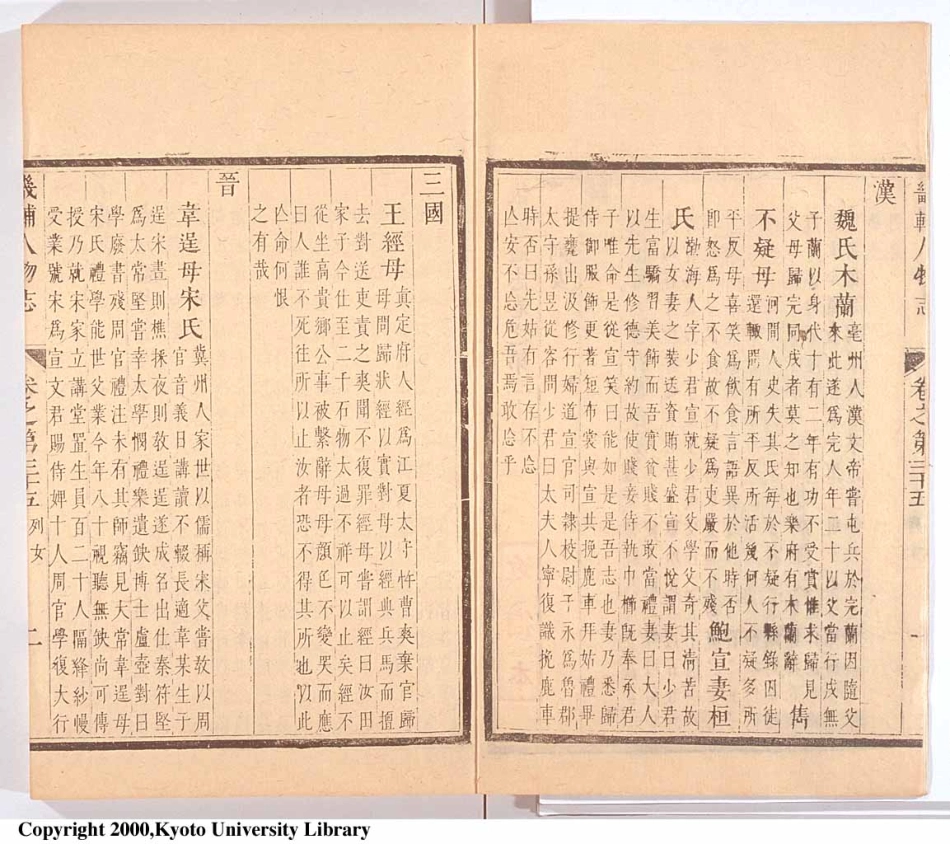 漢
魏氏木蘭亳州人漢文帝嘗屯兵於完蘭因隨父
來此遂爲完人年二十以父當行戍無
子蘭以身代十有二年有功不受賞惟求歸見
父母歸完同戍者莫之知也樂府有木蘭辭 雋
不疑母河間人史失其氏每於不疑行縣錄因徒
還輒問有所平反所活幾何人不疑多所
平反母喜笑爲飲食言語異於他時否
卽怒爲之不食故不疑爲吏嚴而不殘 鮑宣妻桓
氏渤海人字少君宣就少君父學父奇其淸苦故
以女妻之裝送資賄甚盛宣不悅謂妻曰少君
生富驕習美飾而吾實貧賤不敢當禮妻曰大人
以先生修德守約故使賤妾侍執巾櫛旣奉承君
子唯命是從宣笑曰能如是吾志也妻乃悉歸
侍御服飾更著短布裳與宣共挽鹿車拜姑禮畢
提甕出汲修行婦道宣官司隷校尉子永爲魯郡
太守孫昱從容問少君曰太夫人寧復識挽鹿車
時否曰先姑有言存不忘
亾安不忘危吾焉敢忘乎
三國
王經母眞定府人經爲江夏太守忤曹爽棄官歸
母問歸狀經以實對母以經典兵馬而擅
去對送吏責之爽聞不復罪經母嘗謂經曰汝田
家子今仕至二千石物太過不祥可以止矣經不
從坐高貴鄕公事被繫辭母母顏色不變哭而應
曰人誰不死往所以止汝者恐不得其所也以此
亾命何恨
之有哉
晉
韋逞母宋氏冀州人家世以儒稱宋父嘗敎以周
官音義日講讀不輟長適韋某生子
逞宋晝則樵採夜則敎逞逞遂成名出仕秦符堅
爲太常堅嘗幸太學憫禮樂遺缺博士盧壺對曰
學廢書殘周官禮注未有其師竊見太常韋逞母
宋氏禮學能世父業今年八十視聽無缺尚可傳
授乃就宋家立講堂置生員百二十人隔絳紗幔
受業號宋爲宣文君賜侍婢十人周官學復大行
畿輔人物志 卷之第三十五 列女 二
Copyright 2000,Kyoto University Library